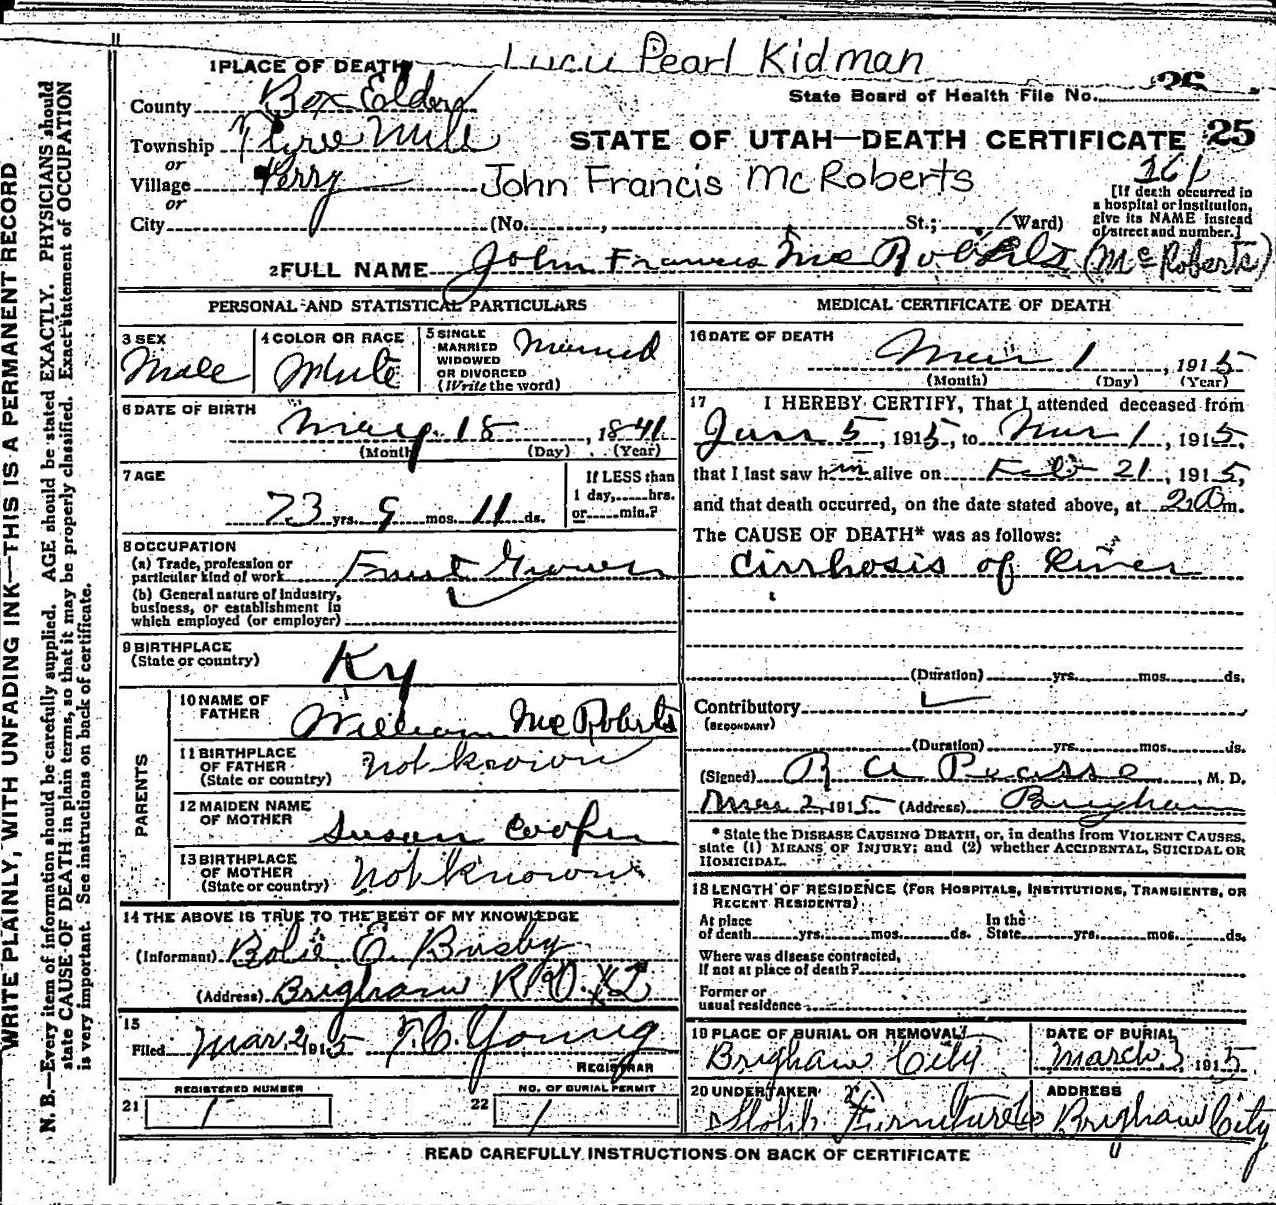 Lucy Pearl Kidman
1 PLACE OF DEATH
County Box Elder
State Board of Health File No. 26
Township Three Mile
STATE OF UTAH—DEATH CERTIFICATE 25
or
Village Perry
John Francis McRoberts
161
or
[If death occurred in
a hospital or institution,
give its NAME instead
of street and number.]
City (No. , St.; Ward)
2 FULL NAME John Francis Mc Roberts (McRoberts)
PERSONAL AND STATISTICAL PARTICULARS
3 SEX
Male
4 COLOR OR RACE
White
5 SINGLE
MARRIED
WIDOWED
OR DIVORCED
(Write the word)
Married
6 DATE OF BIRTH
May 18, 1841
(Month) (Day) (Year)
7 AGE
73 yrs. 9 mos. 11 ds.
If LESS than
1 day, hrs.
or min.?
8 OCCUPATION
(a) Trade, profession or
particular kind of work Fruit Grower
(b) General nature of industry,
business, or establishment in
which employed (or employer)
9 BIRTHPLACE
(State or country)
Ky
PARENTS
10 NAME OF
FATHER
William McRoberts
11 BIRTHPLACE
OF FATHER
(State or country)
Not known
12 MAIDEN NAME
OF MOTHER
Susan Cooper
13 BIRTHPLACE
OF MOTHER
(State or country)
Not known
14 THE ABOVE IS TRUE TO THE BEST OF MY KNOWLEDGE
(Informant) E. Busby
(Address) Brigham R.D. #2
15
Filed Mar. 2, 1915 Young
REGISTRAR
REGISTERED NUMBER
21 1
NO. OF BURIAL PERMIT
22 1
MEDICAL CERTIFICATE OF DEATH
16 DATE OF DEATH
Mar 1, 1915
(Month) (Day) (Year)
17 I HEREBY CERTIFY, That I attended deceased from
Jan 5, 1915, to Mar 1, 1915,
that I last saw him alive on Feb 21, 1915,
and that death occurred, on the date stated above, at 2.00 m.
The CAUSE OF DEATH* was as follows:
Cirrhosis of Liver
(Duration) yrs. mos. ds.
Contributory
(SECONDARY)
(Duration) yrs. mos. ds.
(Signed) R A Pearse, M. D.
Mar 2, 1915 (Address) Brigham
* State the DISEASE CAUSING DEATH, or, in deaths from VIOLENT CAUSES,
state (1) MEANS OF INJURY; and (2) whether ACCIDENTAL, SUICIDAL OR
HOMICIDAL.
18 LENGTH OF RESIDENCE (FOR HOSPITALS, INSTITUTIONS, TRANSIENTS, OR
RECENT RESIDENTS)
At place
of death yrs. mos. ds.
In the
State yrs. mos. ds.
Where was disease contracted,
if not at place of death?
Former or
usual residence
19 PLACE OF BURIAL OR REMOVAL
Brigham City
DATE OF BURIAL
March 3 1915
20 UNDERTAKER
Furniture Co
ADDRESS
Brigham City
READ CAREFULLY INSTRUCTIONS ON BACK OF CERTIFICATE
WRITE PLAINLY, WITH UNFADING INK—THIS IS A PERMANENT RECORD
N. B.—Every item of information should be carefully supplied. AGE should be stated EXACTLY. PHYSICIANS should
state CAUSE OF DEATH in plain terms, so that it may be properly classified. Exact statement of OCCUPATION
is very important. See instructions on back of certificate.